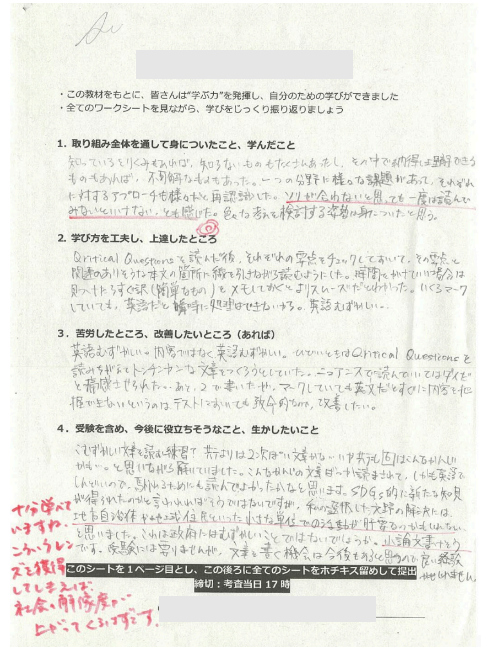 ・この教材をもとに、皆さんは“学ぶ力”を発揮し、自分のための学びができました
・全てのワークシートを見ながら、学びをじっくり振り返りましょう
1. 取り組み全体を通して身についたこと、学んだこと
知っているとりくみもあれば、知らないものもたくさんあったし、その中でも納得し理解できる
ものもあれば、不可解なものもあった。一つの分野に様々な課題があって、それぞれ
に対するアプローチも様々だと再認識した。ソリが合わないと思っても一度は読んで
みないといけない、とも感じた。色々な考えを検討する姿勢は身についたと思う。
2. 学び方を工夫し、上達したところ
Qritical Questionsを読んだ後、それぞれの要点をチェックしておいて、その要点と
関連のありそうな本文の箇所に線を引きながら読むようにした。時間をかけていい場合は
見つけたらすぐ訳(簡単なもの)をメモしておくとよりスムーズだとわかった。いくらマーク
していても、英語だと勝手に処理はできないから。英語むずかしい。
3. 苦労したところ、改善したいところ(あれば)
英語むずかしい。内容ではなく英語むずかしい。ひどいときはQritical Questionsを
読みちがえてトンチンカンな文章をつくろうとしていた。ニュアンスで読んでいてはダメだ
と痛感させられた。あと、2で書いたが、マークしていても英文だとすぐに内容を把
握できないというのはテストにおいても致命的なので、改善したい。
4. 受験を含め、今後に役立ちそうなこと、生かしたいこと
むずかしい文を読む練習で
と思いながら解いていました。こんなかんじの文章が
したいので、馴れるためにも読んでよかったかなと思います。SDGs的に新たな知見
が得られたのかと言われればそうではないですが、私が選択した文野の解決には、
地方自治体や地域住民といった小さな単位での活動が肝要なのかもしれない
と思いました。これは政府にはむずかしいことではないでしょうか。小論文書けそう
です。受験いは要りませんが、文章を書く機会は今後もあると思うので良い経験
かもしれません。
十分学べて
いますね。
こういうレン
ズを獲得
してしまえば、
社会の解像度が
上がってくるはずです。
このシートを1ページ目とし、この後ろに全てのシートをホチキス留めして提出
締切：考査当日17時